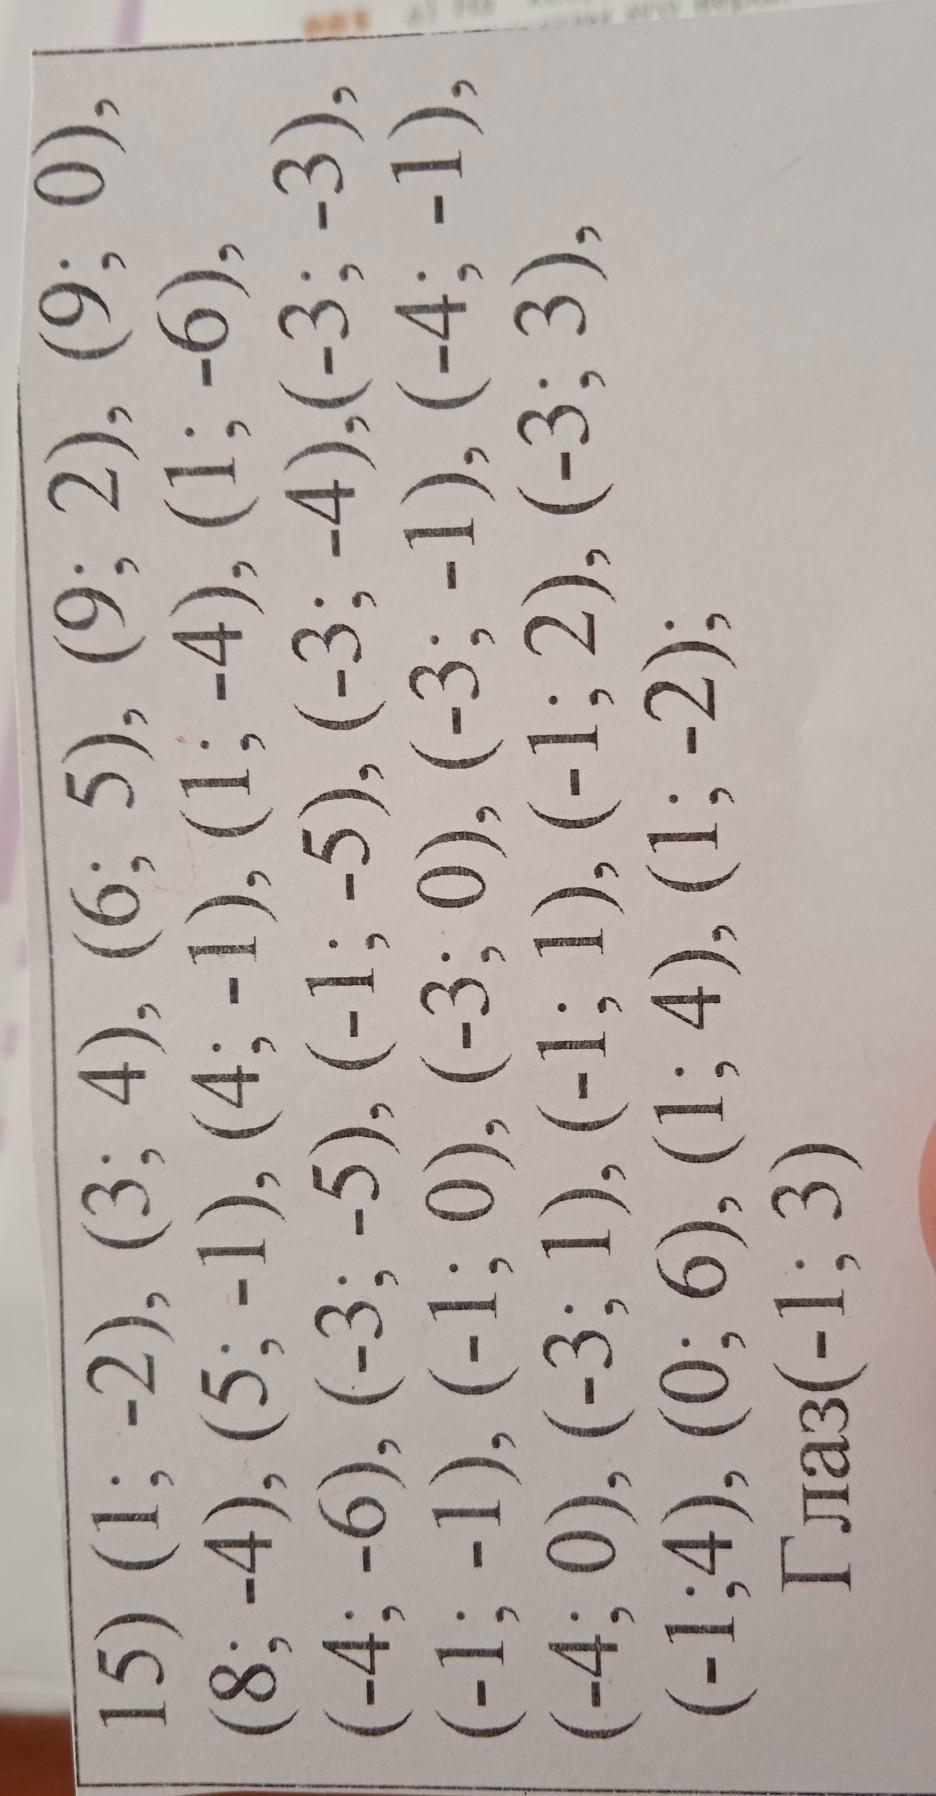 15) (1; -2), (3; 4), (6; 5), (9; 2), (9; 0),
(8; -4), (5; -1), (4; -1), (1; -4), (1; -6),
(-4; -6), (-3; -5), (-1; -5), (-3; -4),(-3; -3),
(-1; -1), (-1; 0), (-3; 0), (-3; -1), (-4; -1),
(-4; 0), (-3; 1), (-1; 1), (-1; 2), (-3; 3),
(-1;4), (0; 6), (1; 4), (1; -2);
Глаз(-1; 3)